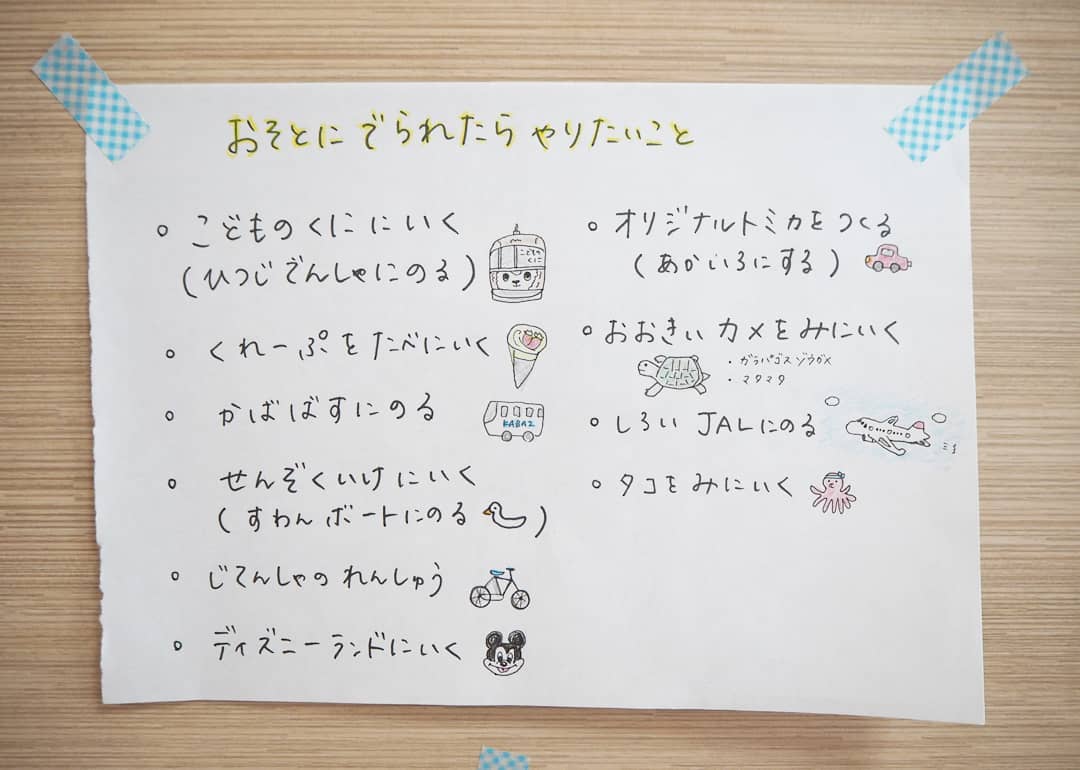 おそとにでられたら やりたいこと
こどものくににいく
(ひつじでんしゃにのる)
こどもの
くに
くれーぷをたべにいく
かばばすにのる
KABA2
せんぞくいけにいく
(すわんボートにのる)
じてんしゃのれんしゅう
ディズニーランドにいく
オリジナルトミカをつくる
(あかいろにする)
おおきいカメをみにいく
・ガラパゴスゾウガメ
・マタマタ
しろいJALにのる
タコをみにいく